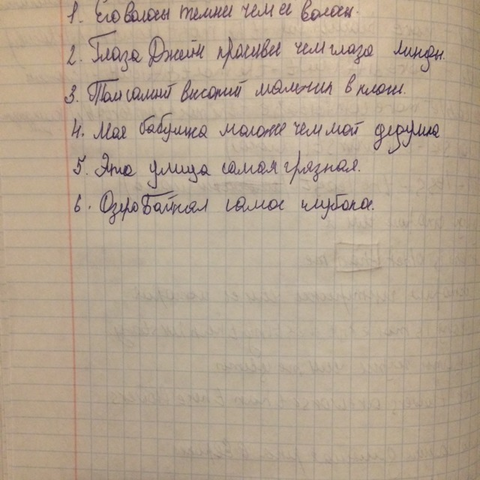 1. Его волосы темнее чем ее волосы.
2. Глаза Джейн красивее чем глаза Линды.
3. Том самый высокий мальчик в классе.
4. Моя бабушка моложе чем мой дедушка
5. Эта улица самая грязная.
6. Озеро Байкал самое глубокое.